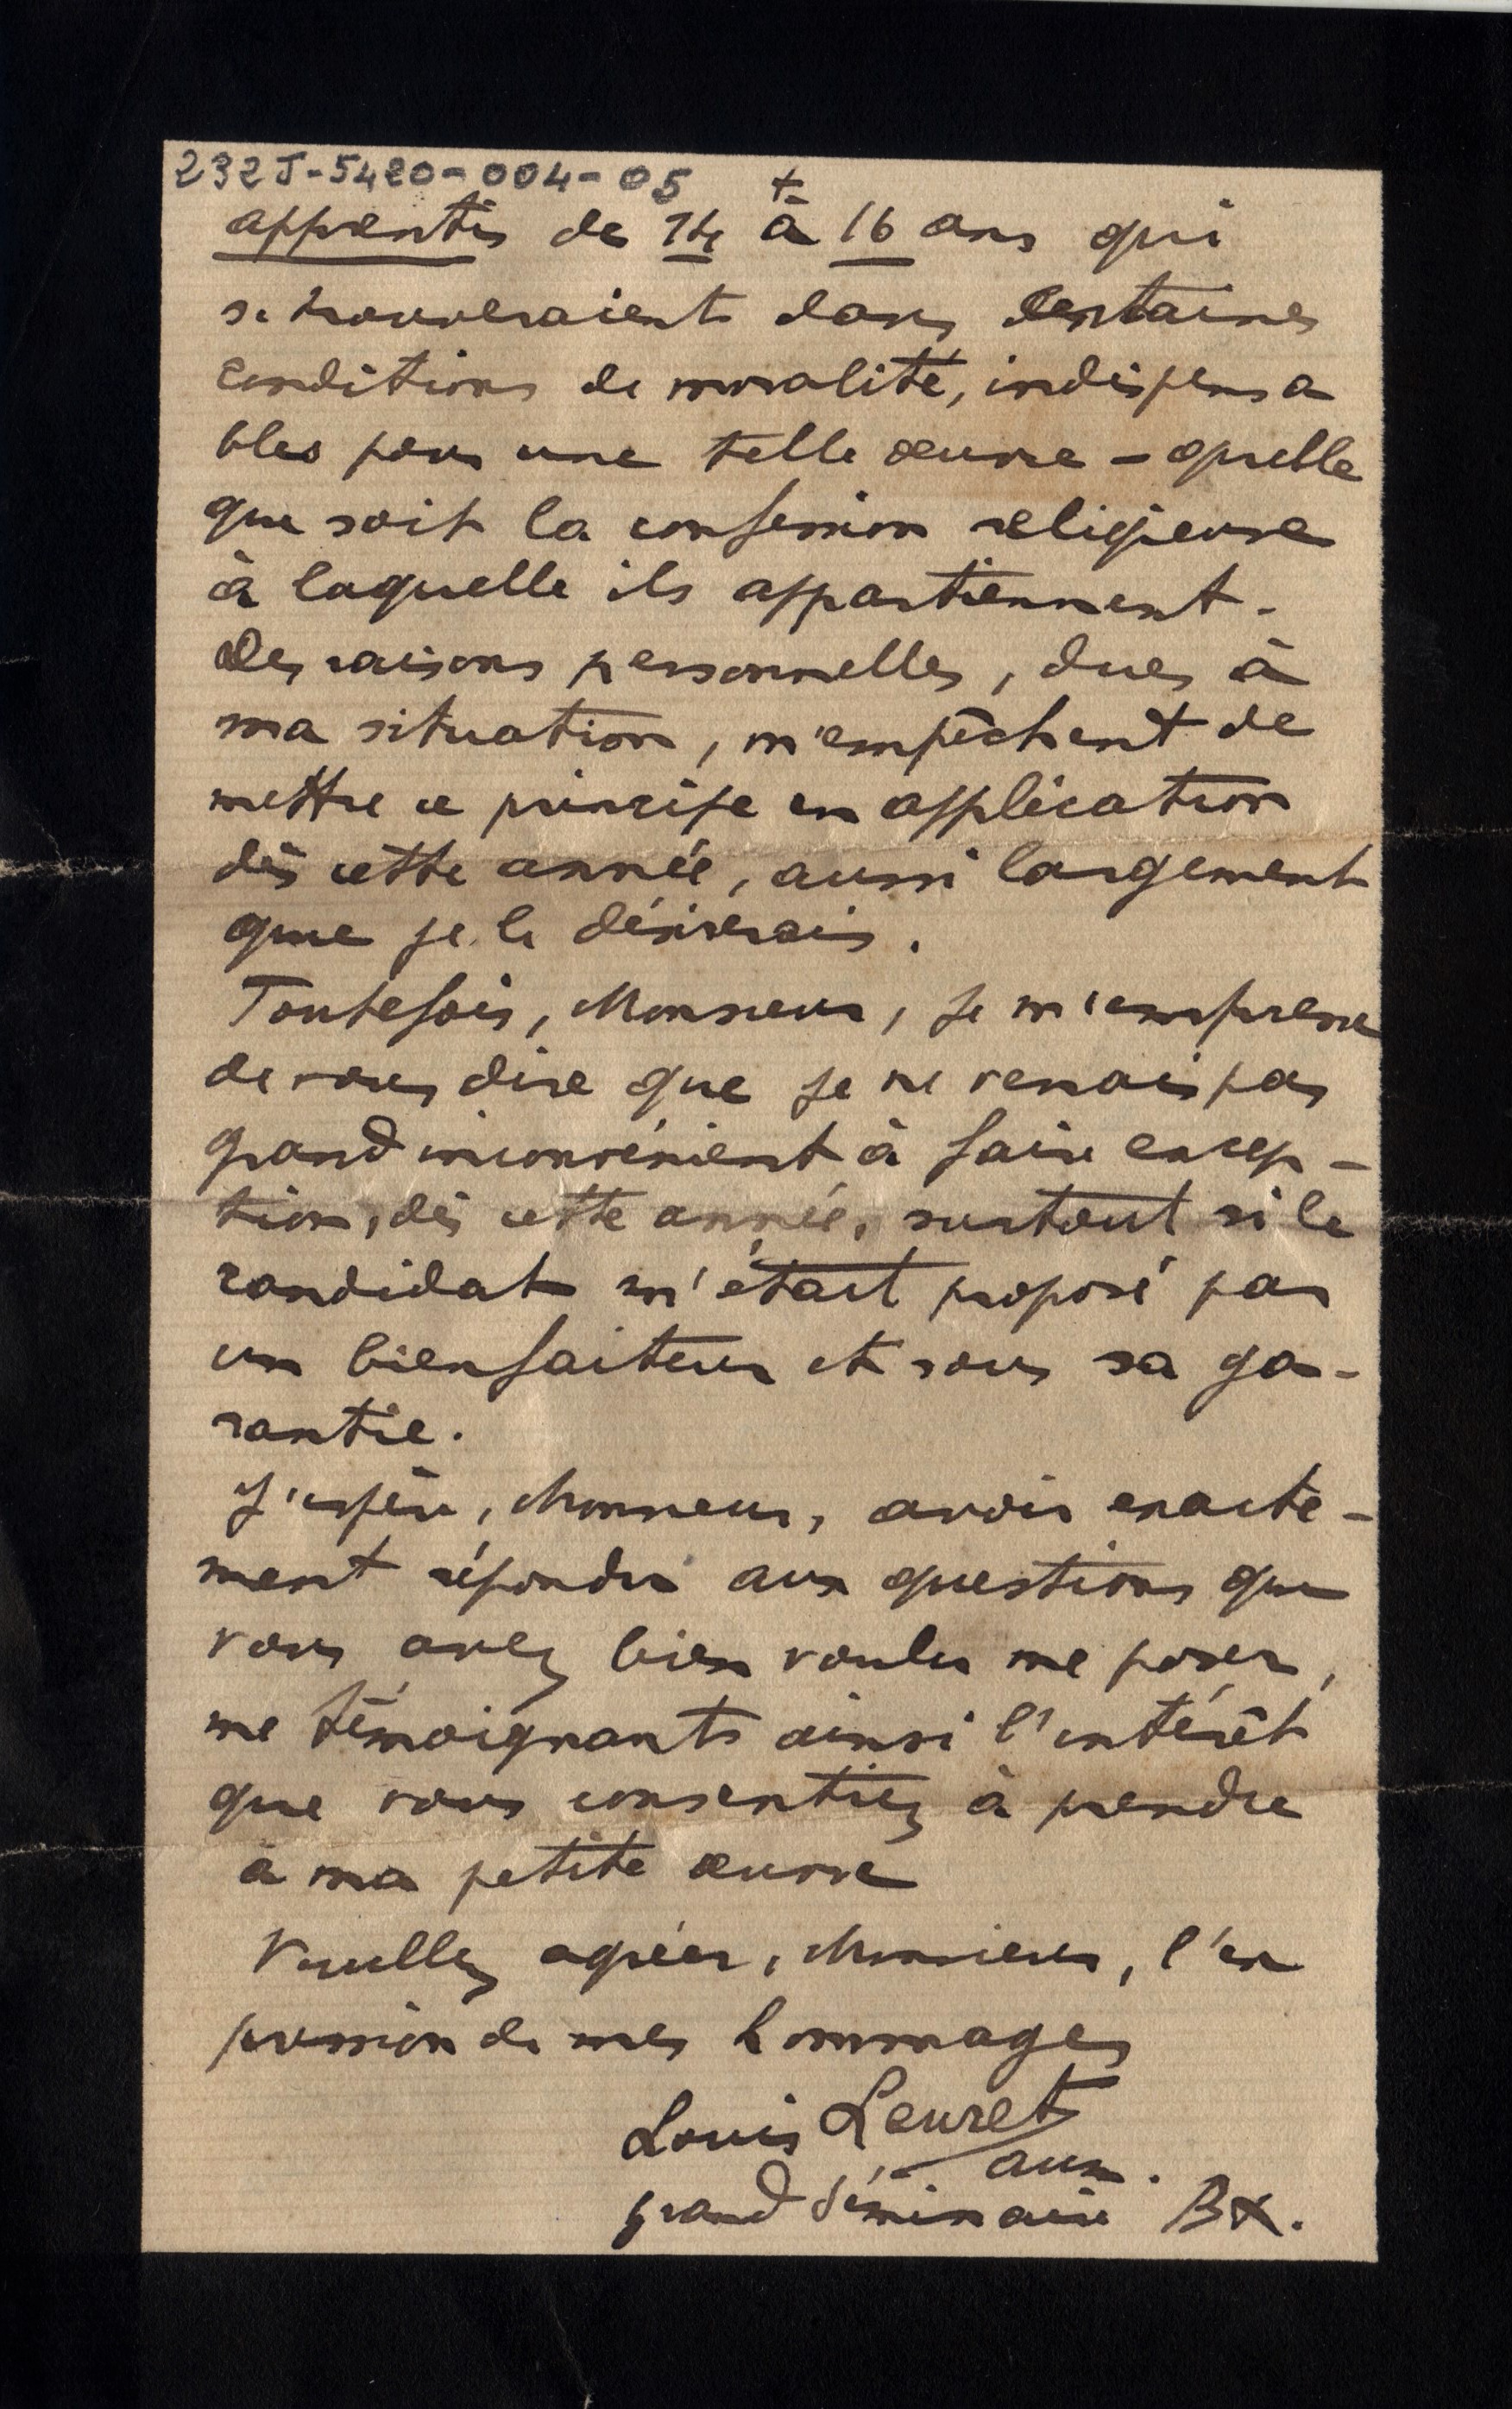 232J-5420-004-05
+
apprentis de 14 à 16 ans qui
se trouveraient dans certaines
conditions de moralité, indispensa
bles pour une telle œuvre – quelle
que soit la confession religieuse
à laquelle ils appartiennent.
Des raisons personnelles, dues à
ma situation, m'empêchent de
mettre ce principe en application
dès cette année, aussi largement
que je le désirerais.
Toutefois, Monsieur, je m'empresse
de vous dire que je ne verrais pas
grand inconvénient à faire excep-
tion, dès cette année, surtout si le
candidat m'était proposé par
un bienfaiteur et sous sa ga-
rantie.
J'espère, Monsieur, avoir exacte-
ment répondu aux questions que
vous avez bien voulu me poser,
me témoignants ainsi l'intérêt
que vous consentiez à prendre
à ma petite œuvre
Veuillez agréer, Monsieur, l'ex
pression de mes hommages
Louis Leuret
aum.
grand Séminaire Bx.